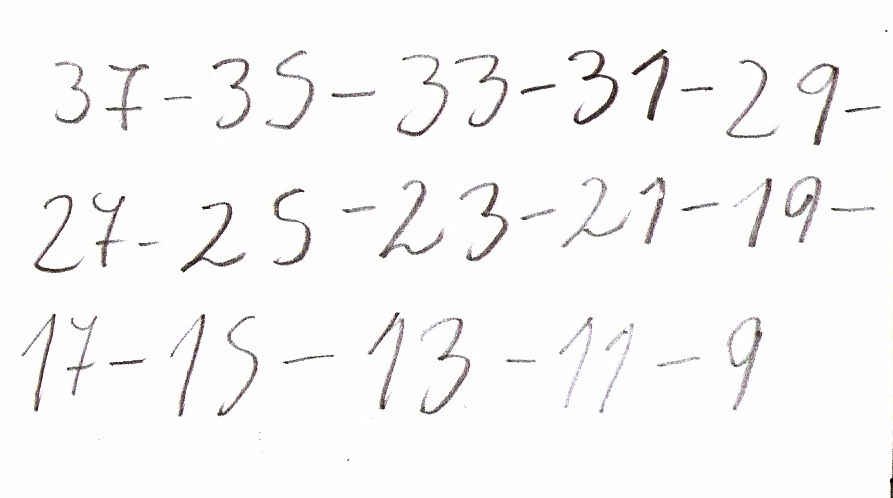 37-35-33-31-29-
27-25-23-21-19-
17-15-13-11-9